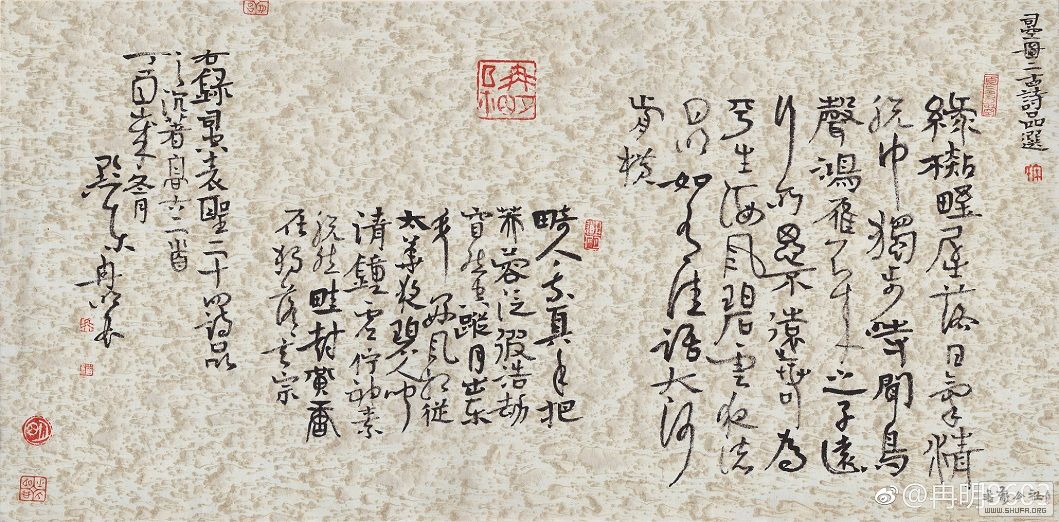 司空圖二古詩品選
綠檆壄屋落日氣清
脫巾獨步時聞鳥
聲鴻雁不來之子遠
行所思不遠若為
平生海風碧雲夜渚
月明如有佳語大河
前橫
畸人乘真手把
芙蓉泛彼浩劫
窅然空蹤月出東
斗好風相從
太華夜碧人聞
清鐘虛佇神素
脫然畦封黃唐
在獨落落玄宗
右錄司空表聖二十四詩品
之沉著高古二首
丁酉歲冬月
冉明
@冉明
WWW.SHUFA.ORG